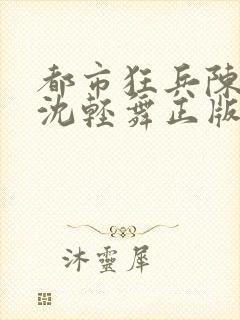 都市狂兵陳
沈輕舞正版
沐靈犀